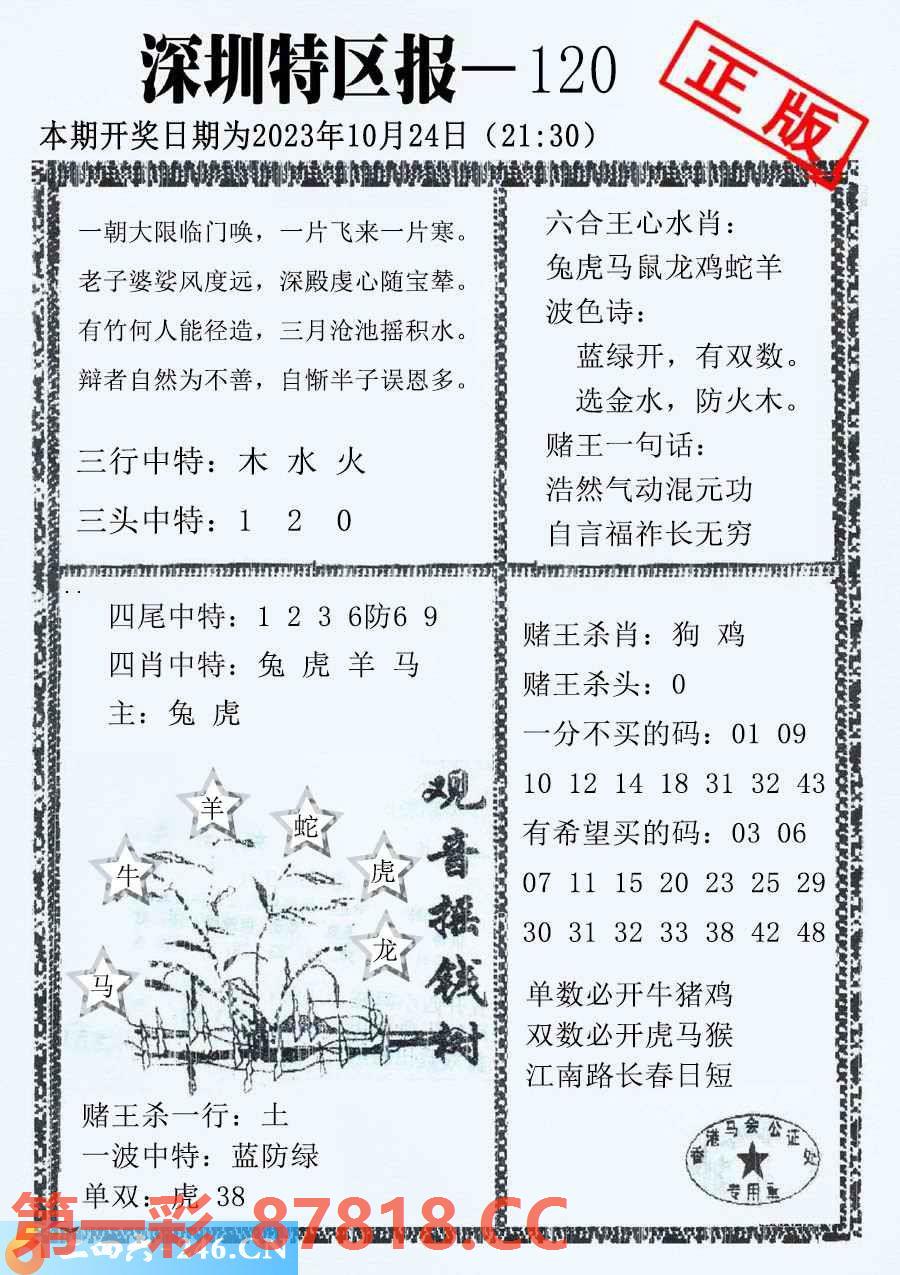 深圳特区报—120
正版
本期开奖日期为2023年10月24日（21:30）
一朝大限临门唤，一片飞来一片寒。
老子婆娑风度远，深殿虔心随宝辇。
有竹何人能径造，三月沧池摇积水。
辩者自然为不善，自惭半子误恩多。
三行中特：木 水 火
三头中特：1 2 0
六合王心水肖：
兔虎马鼠龙鸡蛇羊
波色诗：
蓝绿开，有双数。
选金水，防火木。
赌王一句话：
浩然气动混元功
自言福祚长无穷
四尾中特：1 2 3 6防6 9
四肖中特：兔 虎 羊 马
主：兔 虎
观音摇钱树
羊
蛇
牛
虎
龙
马
赌王杀一行：土
一波中特：蓝防绿
单双：虎 38
赌王杀肖：狗 鸡
赌王杀头：0
一分不买的码：01 09
10 12 14 18 31 32 43
有希望买的码：03 06
07 11 15 20 23 25 29
30 31 32 33 38 42 48
单数必开牛猪鸡
双数必开虎马猴
江南路长春日短
香港马会公证处
专用章
第一彩 87818.CC
246.CN